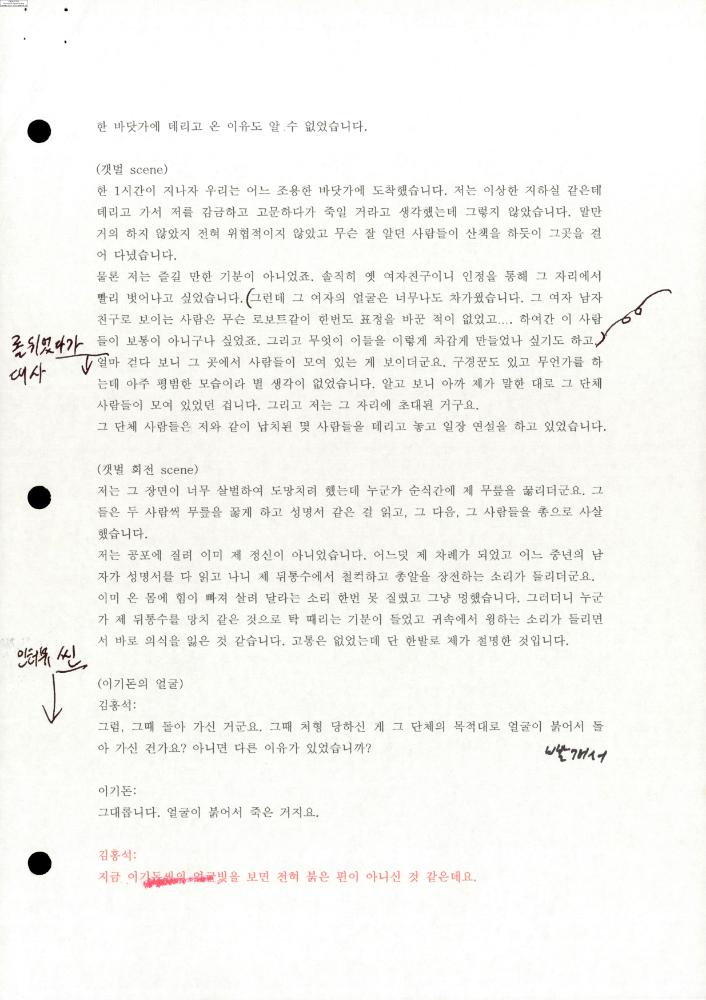 한 바닷가에 데리고 온 이유도 알 수 없었습니다.
(갯벌 scene)
한 1시간이 지나자 우리는 어느 조용한 바닷가에 도착했습니다. 저는 이상한 지하실 같은데
데리고 가서 저를 감금하고 고문하다가 죽일 거라고 생각했는데 그렇지 않았습니다. 말만
거의 하지 않았지 전혀 위협적이지 않았고 무슨 잘 알던 사람들이 산책을 하듯이 그곳을 걸
어 다녔습니다.
물론 저는 즐길 만한 기분이 아니었죠. 솔직히 옛 여자친구이니 인정을 통해 그 자리에서
빨리 벗어나고 싶었습니다. (그런데 그 여자의 얼굴은 너무나도 차가웠습니다. 그 여자 남자
친구로 보이는 사람은 무슨 로보트같이 한번도 표정을 바꾼 적이 없었고.... 하여간 이 사람
들이 보통이 아니구나 싶었죠. 그리고 무엇이 이들을 이렇게 차갑게 만들었나 싶기도 하고,)
대사
얼마 걷다 보니 그 곳에서 사람들이 모여 있는 게 보이더군요. 구경꾼도 있고 무언가를 하
는데 아주 평범한 모습이라 별 생각이 없었습니다. 알고 보니 아까 제가 말한 대로 그 단체
사람들이 모여 있었던 겁니다. 그리고 저는 그 자리에 초대된 거구요.
그 단체 사람들은 저와 같이 납치된 몇 사람들을 데리고 놓고 일장 연설을 하고 있었습니다.
(갯벌 회전 scene)
저는 그 장면이 너무 살벌하여 도망치려 했는데 누군가 순식간에 제 무릎을 꿇리더군요. 그
들은 두 사람씩 무릎을 꿇게 하고 성명서 같은 걸 읽고, 그 다음, 그 사람들을 총으로 사살
했습니다.
저는 공포에 질려 이미 제 정신이 아니었습니다. 어느덧 제 차례가 되었고 어느 중년의 남
자가 성명서를 다 읽고 나니 제 뒤통수에서 철컥하고 총알을 장전하는 소리가 들리더군요.
이미 온 몸에 힘이 빠져 살려 달라는 소리 한번 못 질렀고 그냥 멍했습니다. 그러더니 누군
가 제 뒤통수를 망치 같은 것으로 탁 때리는 기분이 들었고 귀속에서 윙하는 소리가 들리면
서 바로 의식을 잃은 것 같습니다. 고통은 없었는데 단 한발로 제가 절명한 것입니다.
인터뷰 씬
(이기돈의 얼굴)
김홍석:
그럼, 그때 돌아 가신 거군요. 그때 처형 당하신 게 그 단체의 목적대로 얼굴이 붉어서 돌
아 가신 건가요? 아니면 다른 이유가 있었습니까?
빨개서
이기돈:
그대롭니다. 얼굴이 붉어서 죽은 거지요.
김홍석:
지금 이기돈씨의 얼굴빛을 보면 전혀 붉은 편이 아니신 것 같은데요.